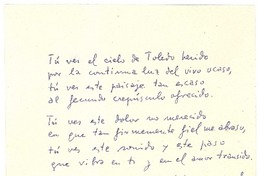 Tú ves el cielo de Toledo herido
por la continua luz del vivo ocaso,
tú ves este paisaje tan escaso
al fecundo crepúsculo ofrecido.
Tú ves este dolor no merecido
en que tan firmemente fiel me abraso,
tú ves este sonido y este paso
que vibra en ti y en el amor transido.